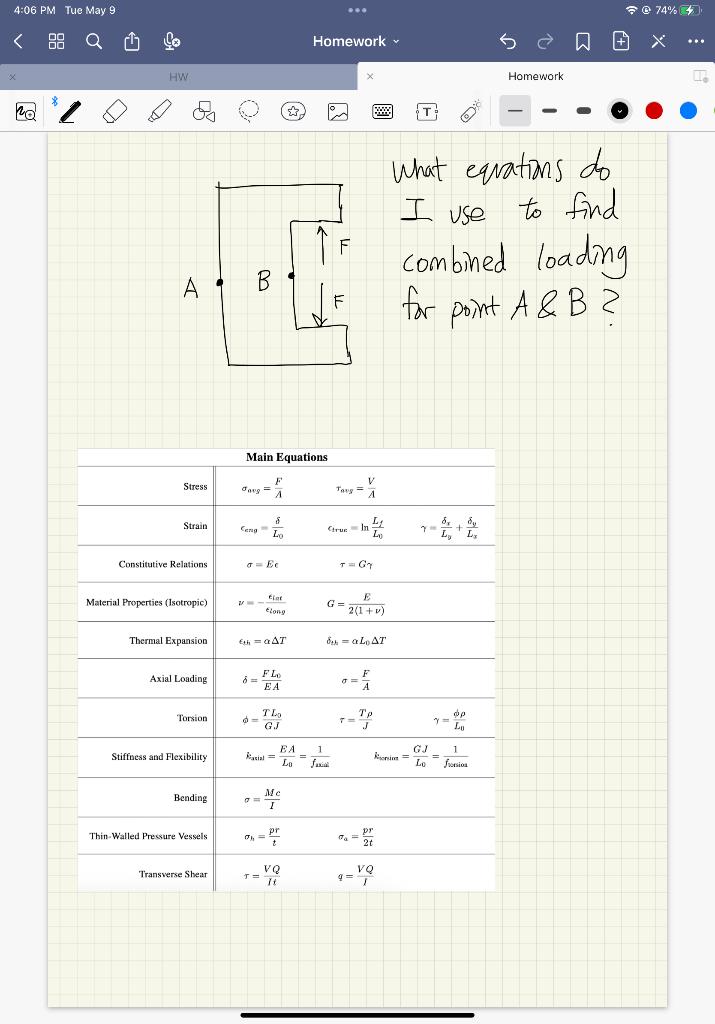 4:06 PM Tue May 9
74%
Homework
HW
Homework
What equations do
I use to find
combined loading
for point A & B ?
F
A
B
F
Main Equations
Stress σ_avg = F/A τ_avg = V/A
Strain ϵ_eng = δ/L₀ ϵ_true = ln L_f/L₀ γ = δ_x/L_y + δ_y/L_x
Constitutive Relations σ = Eϵ τ = Gγ
Material Properties (Isotropic) ν = − ϵ_lat/ϵ_long G = E/2(1 + ν)
Thermal Expansion ϵ_th = αΔT δ_th = αL₀ΔT
Axial Loading δ = FL₀/EA σ = F/A
Torsion ϕ = TL₀/GJ τ = Tρ/J γ = ϕρ/L₀
Stiffness and Flexibility k_axial = EA/L₀ = 1/f_axial k_torsion = GJ/L₀ = 1/f_torsion
Bending σ = Mc/I
Thin-Walled Pressure Vessels σ_h = pr/t σ_a = pr/2t
Transverse Shear τ = VQ/It q = VQ/I